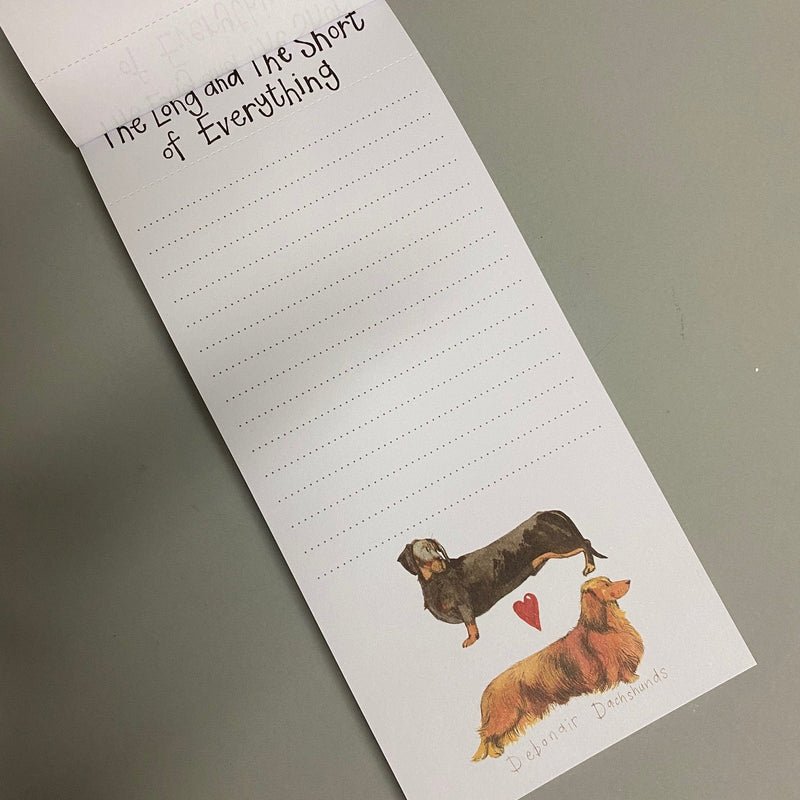 The Long and The Short
of Everything
Debonair Dachshunds